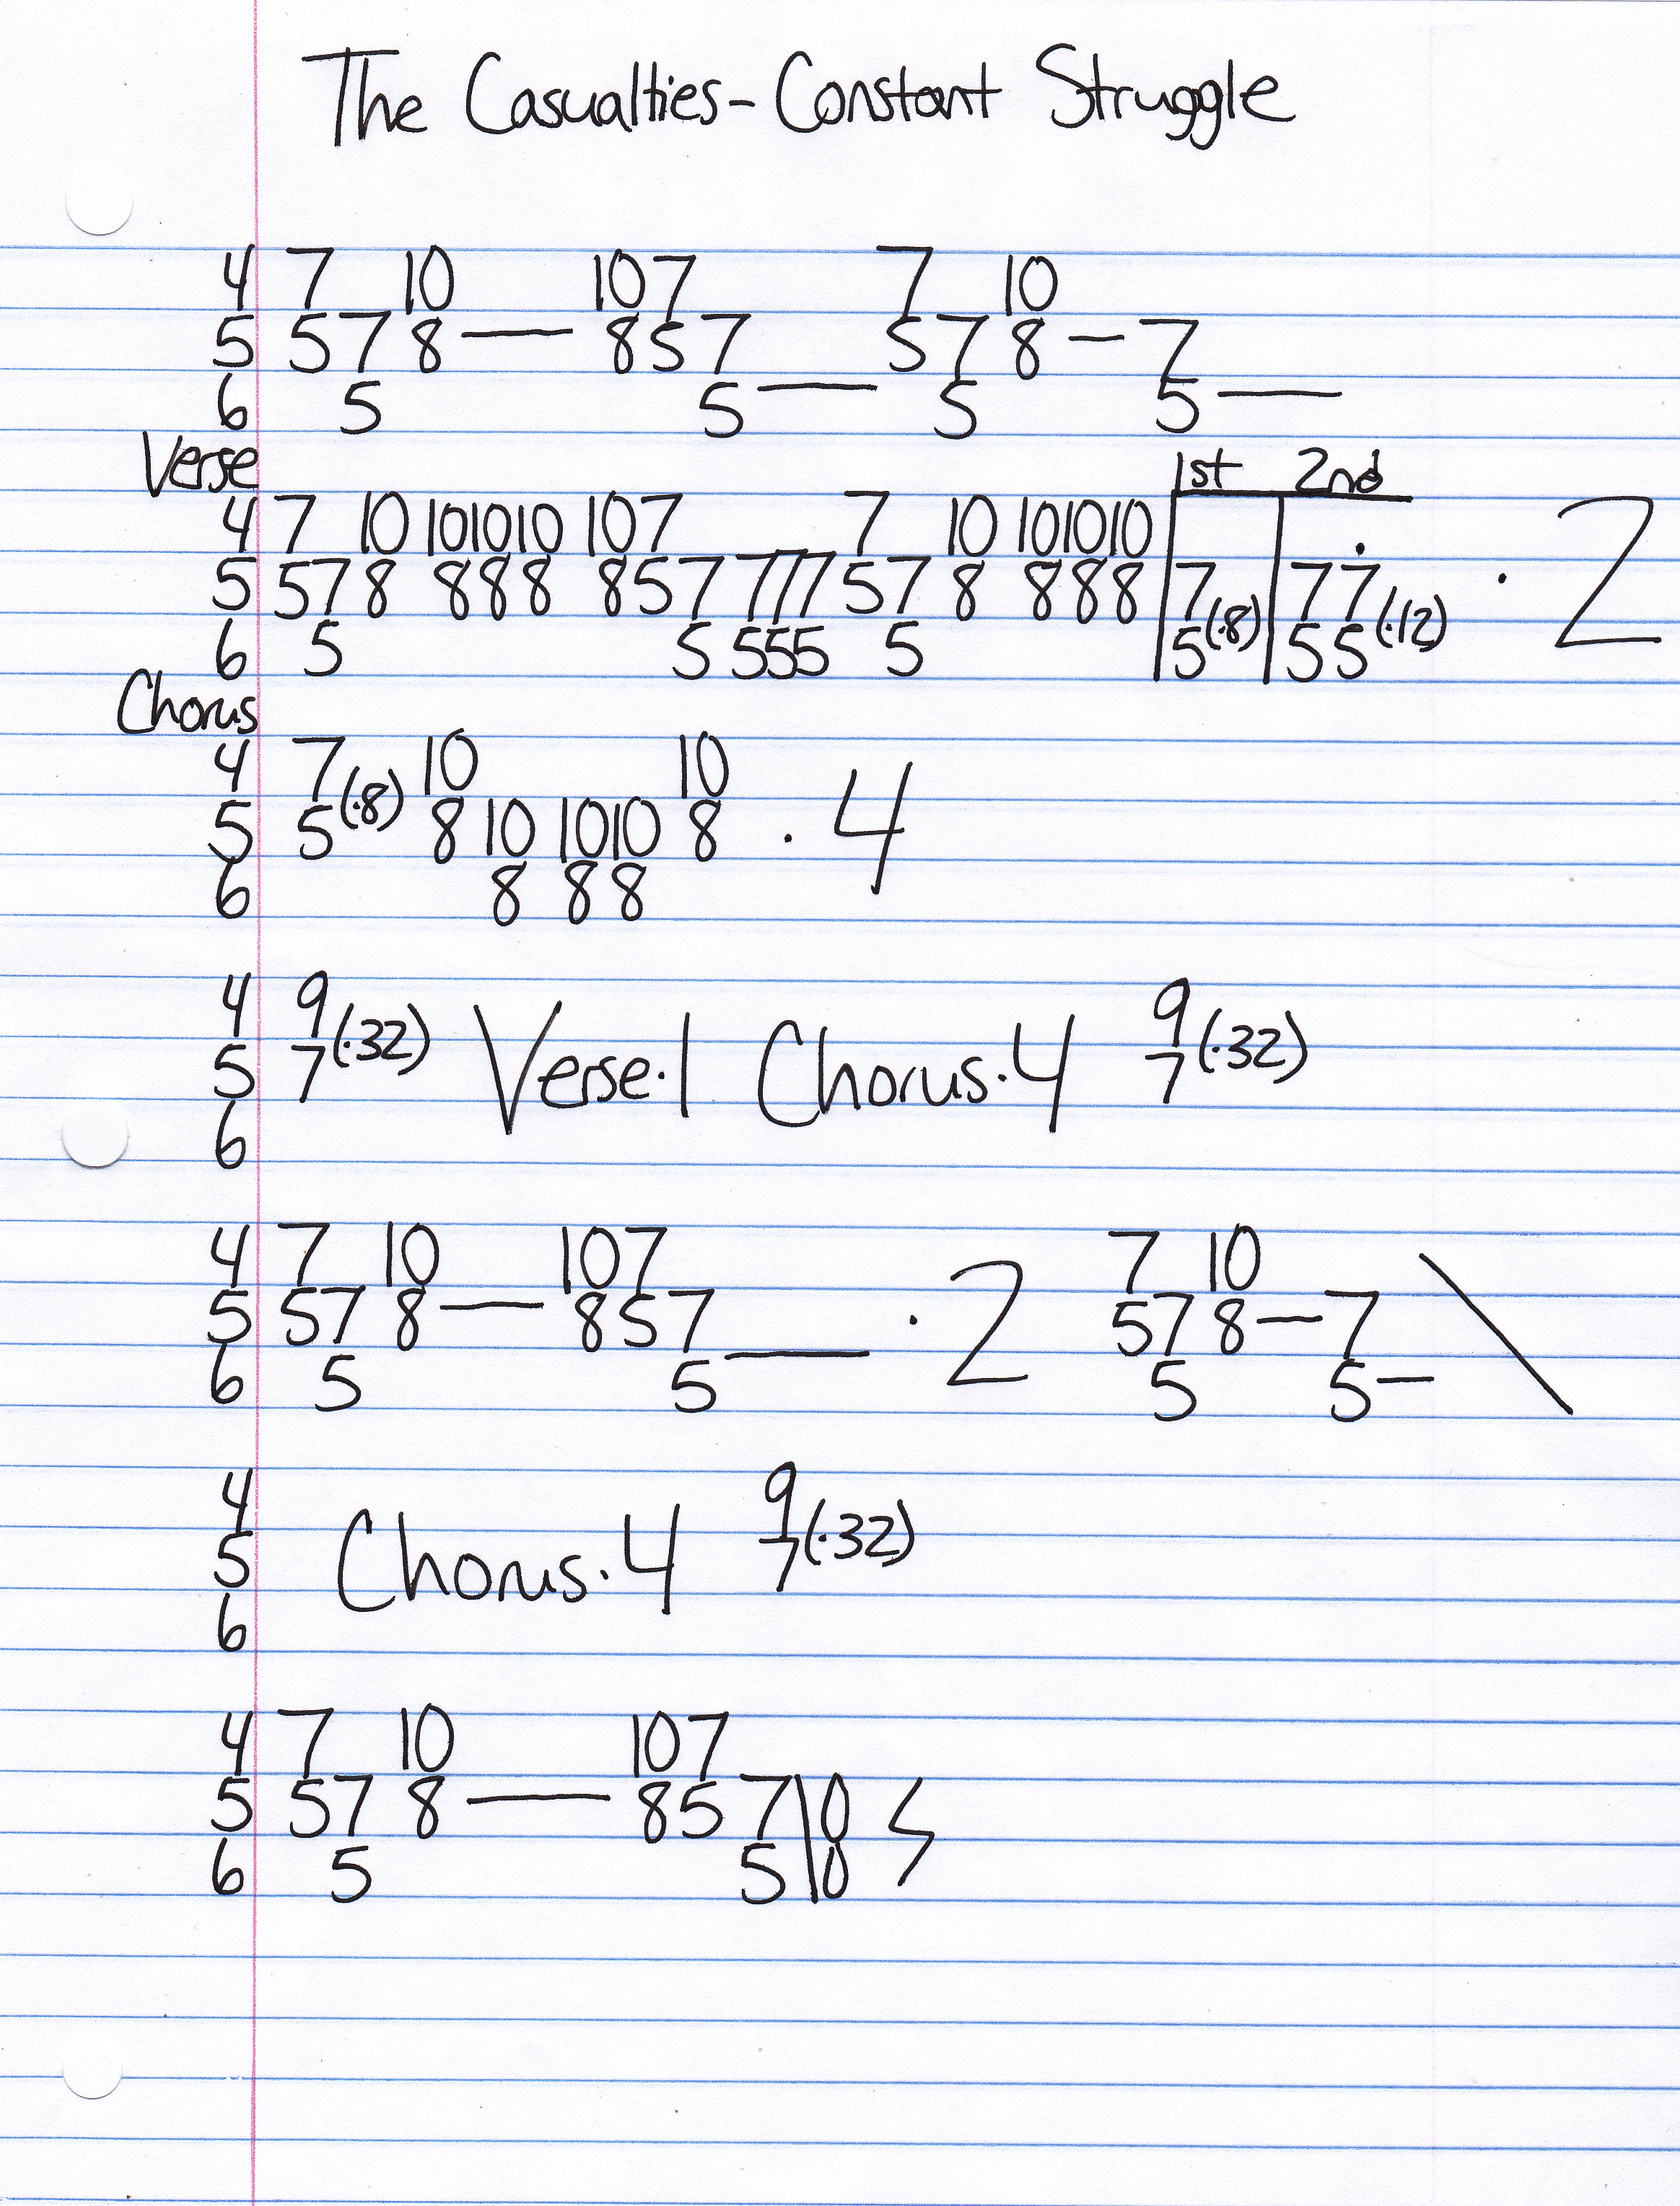 The Casualties - Constant Struggle
4 7 10 10 7 7 10
5 5 7 8 — 8 5 7 5 7 8 – 7
6 5 5 — 5 5 —
Verse 1st 2nd
4 7 10 10 10 10 10 7 7 10 10 10 10
5 5 7 8 8 8 8 8 5 7 7 7 7 5 7 8 8 8 8 7 7 7̇ · 2
6 5 5 5 5 5 5 5 (·8) 5 5 (·12)
Chorus
4 7 10 10
5 5 (·8) 8 10 10 10 8 · 4
6 8 8 8
4 9
5 7 (·32) Verse·1 Chorus·4 9 7 (·32)
6
4 7 10 10 7 7 10
5 5 7 8 — 8 5 7 · 2 5 7 8 – 7 \
6 5 5 — 5 5 –
4 9
5 Chorus·4 7 (·32)
6
4 7 10 10 7
5 5 7 8 — 8 5 7 \ 0
6 5 5 0